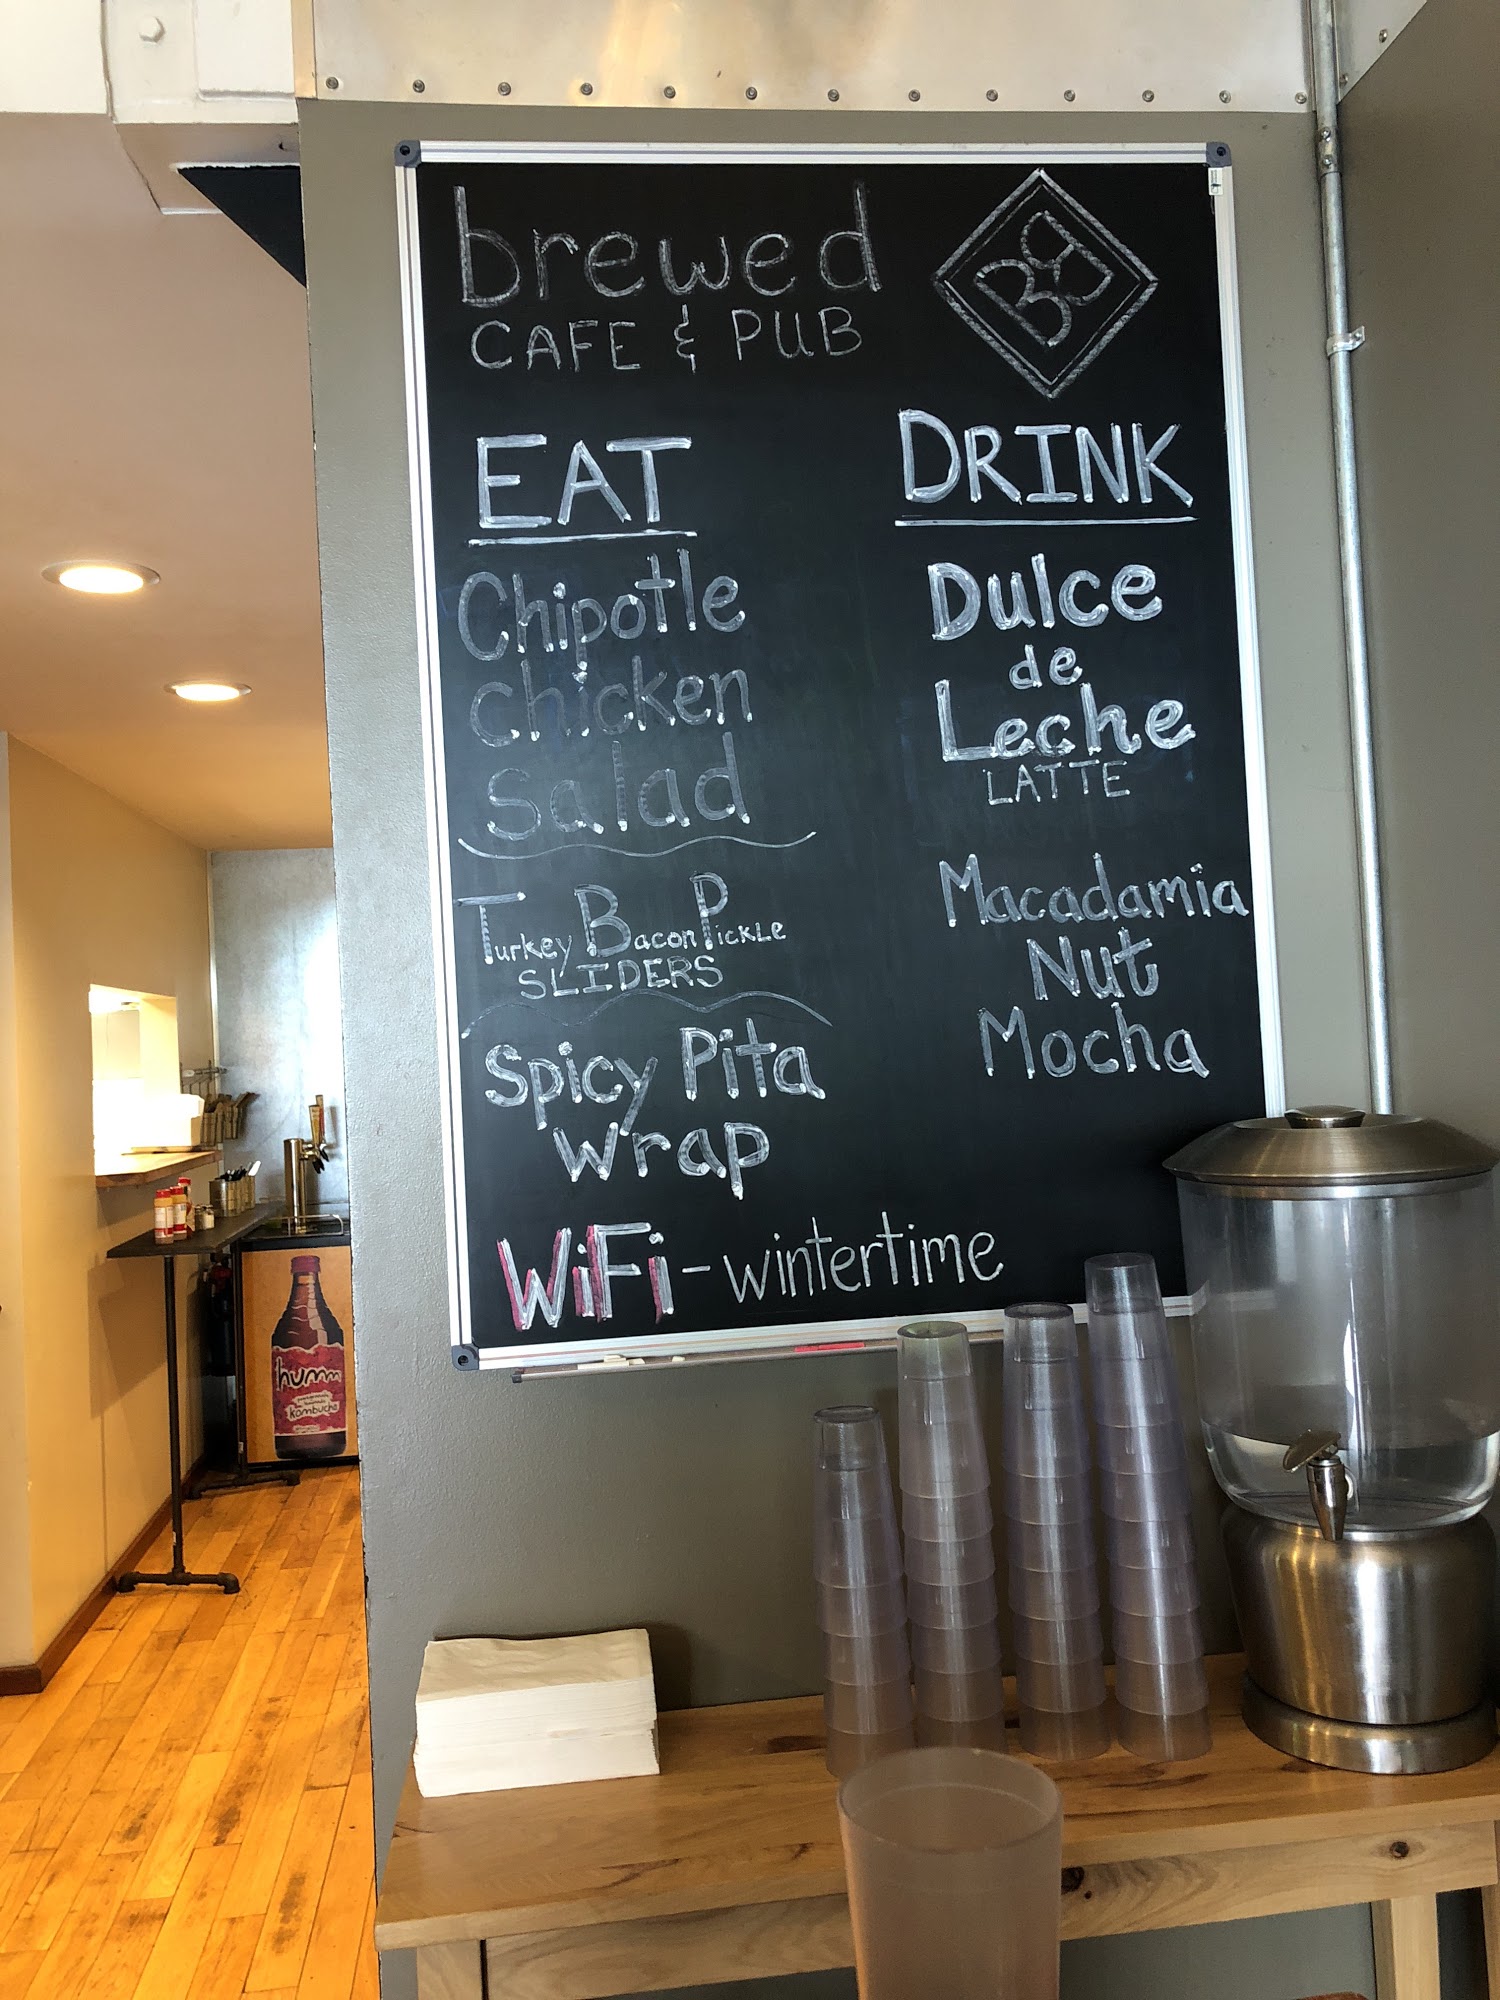 brewed
CAFE & PUB
EAT
Chipotle
Chicken
Salad
Turkey Bacon Pickle
SLIDERS
Spicy Pita
Wrap
DRINK
Dulce
de
Leche
LATTE
Macadamia
Nut
Mocha
WiFi - wintertime
humm
kombucha